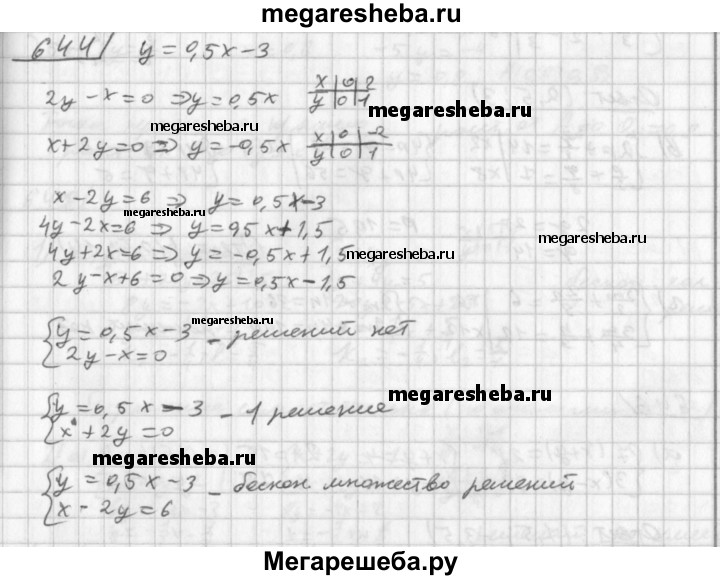 megaresheba.ru
644 y = 0,5x - 3
2y - x = 0 ⇒ y = 0,5x x | 0 | 2
y | 0 | 1
megaresheba.ru
megaresheba.ru
x + 2y = 0 ⇒ y = -0,5x x | 0 | -2
y | 0 | 1
x - 2y = 6 ⇒ y = 0,5x - 3
megaresheba.ru
4y - 2x = 6 ⇒ y = 0,5x + 1,5
megaresheba.ru
4y + 2x = 6 ⇒ y = -0,5x + 1,5
megaresheba.ru
2y - x + 6 = 0 ⇒ y = 0,5x - 1,5
megaresheba.ru
{ y = 0,5x - 3 - решений нет
2y - x = 0
megaresheba.ru
{ y = 0,5x - 3 - 1 решение
x + 2y = 0
megaresheba.ru
{ y = 0,5x - 3 - бескон. множество решений
x - 2y = 6
Мегарешеба.ру